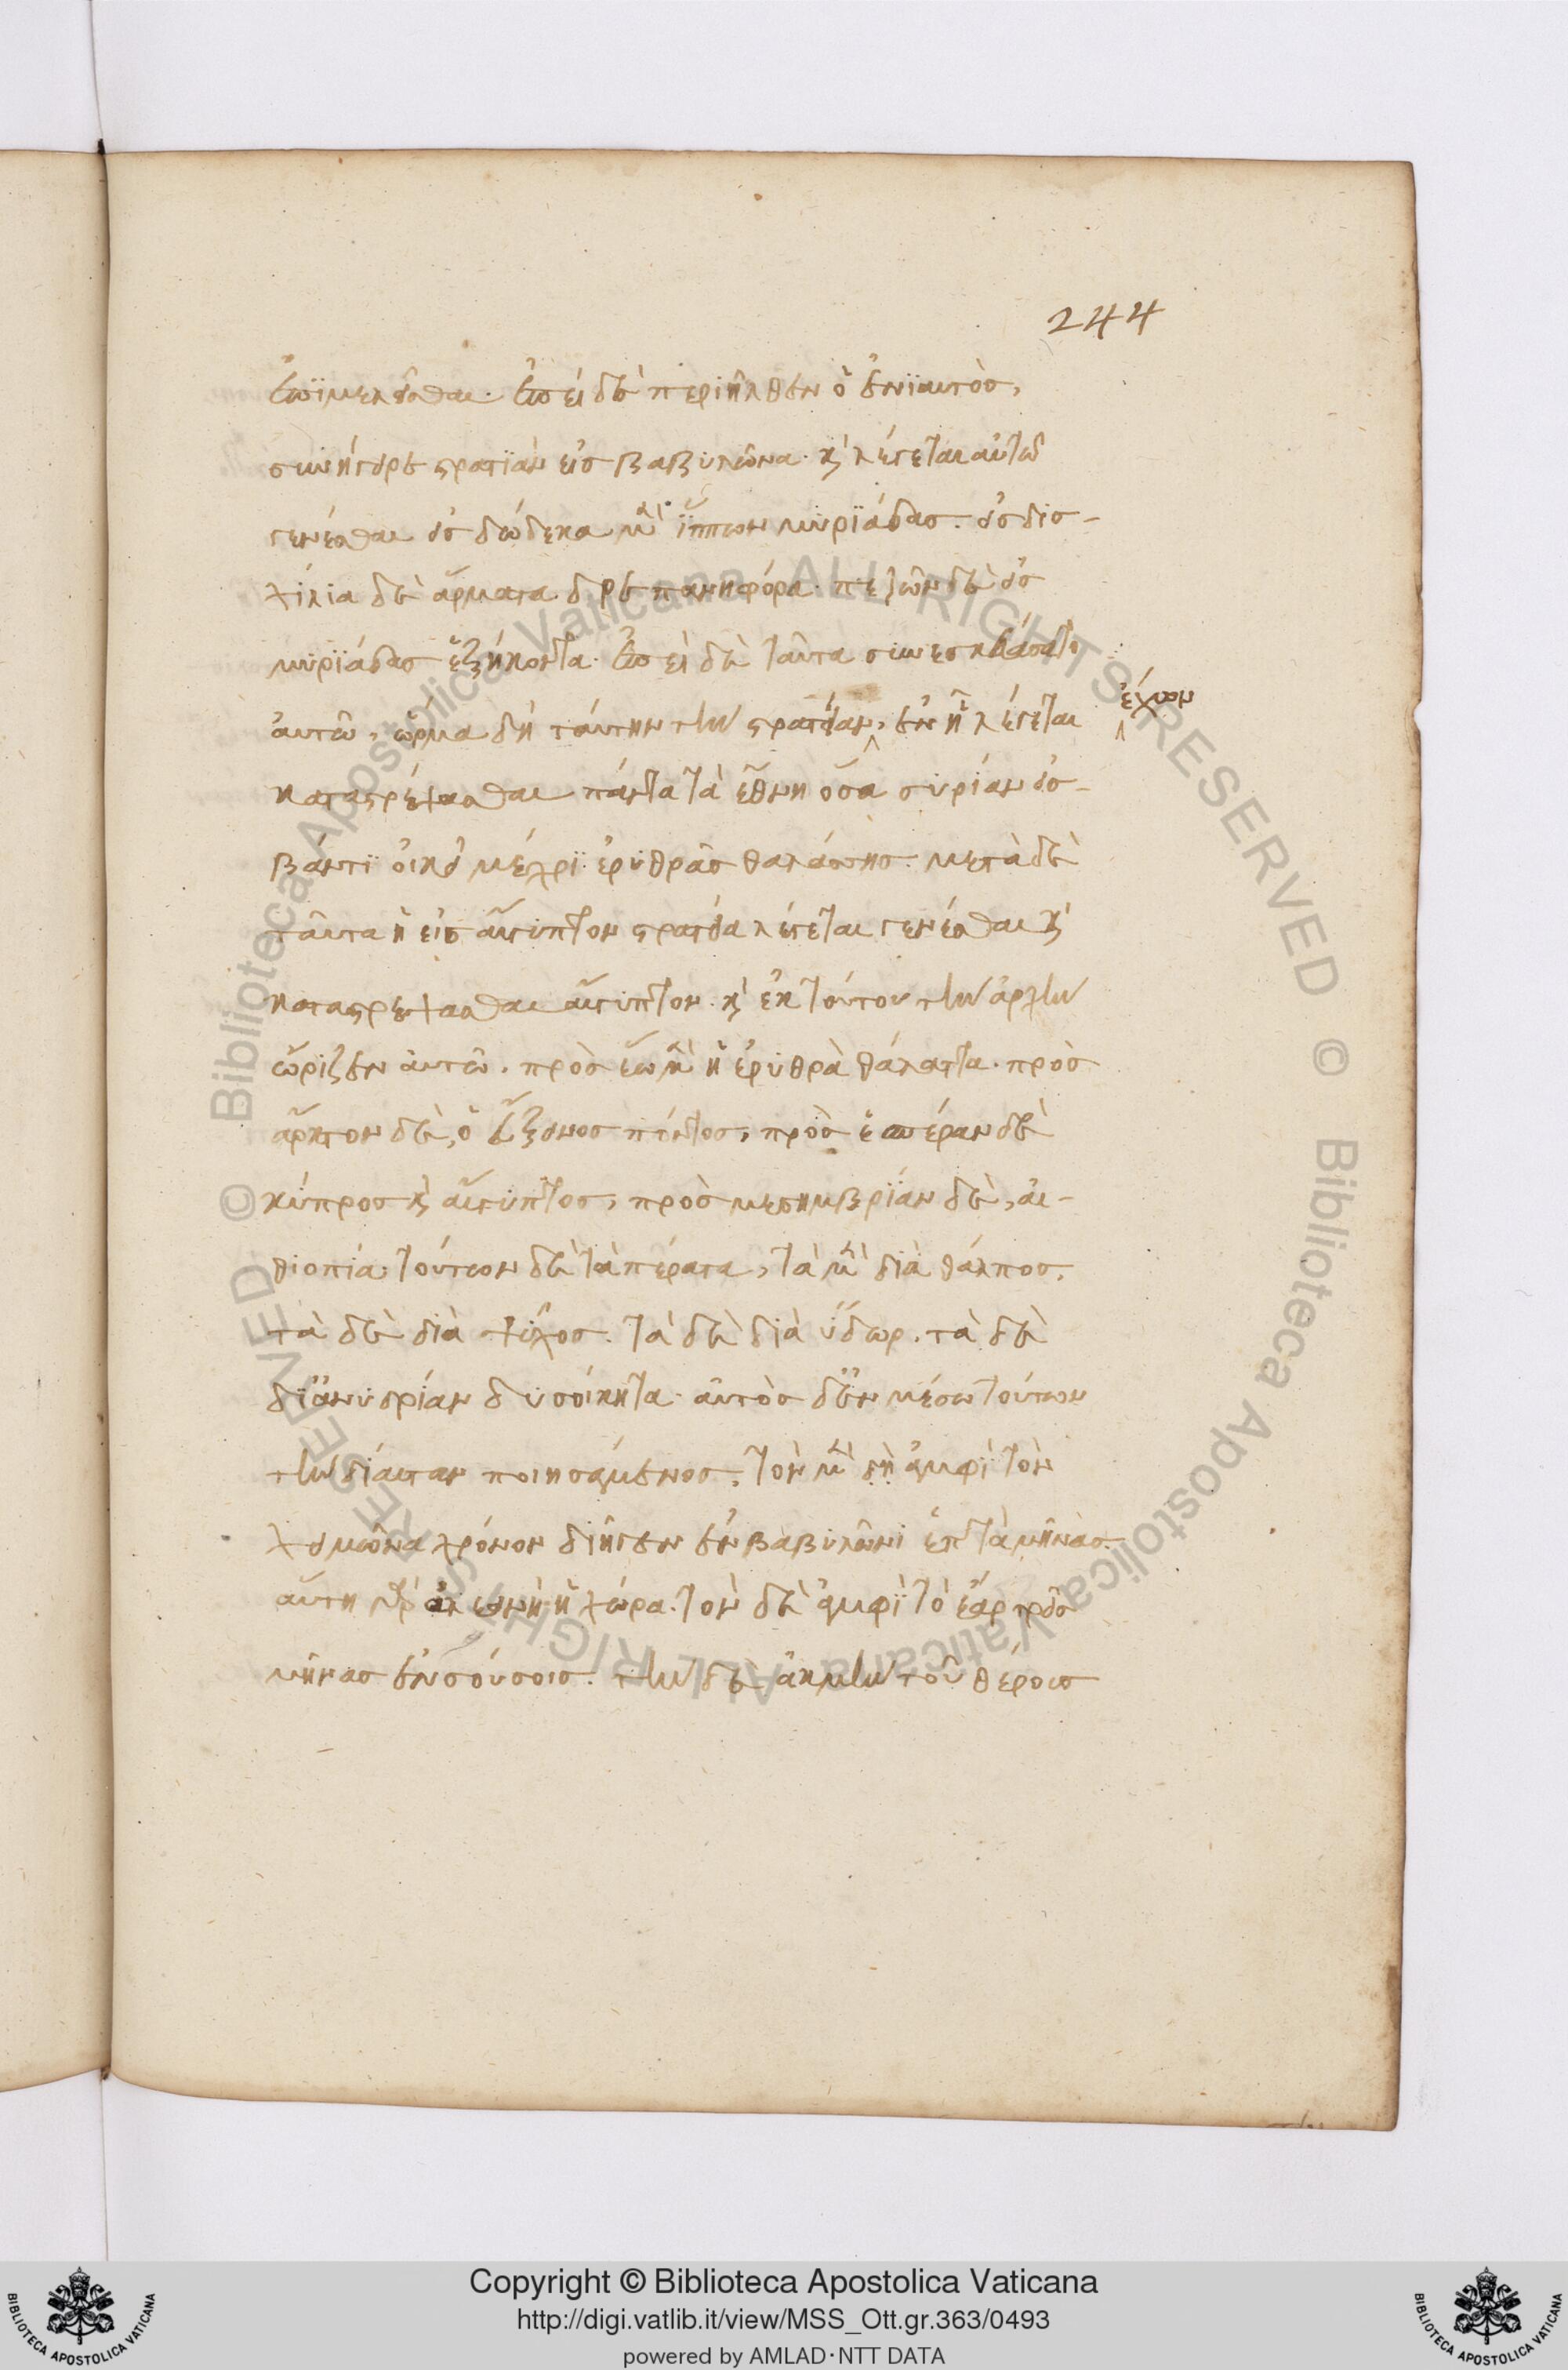 244
ἐπϊμελεῖσθαι. ἐπεὶ δὲ περιῆλθεν ὁ ἐνϊαυτὸς,
συνήγειρε στρατϊὰν εἰς βαβυλῶνα. καὶ λέγεται αὐτῶ
γενέσθαι εἰς δώδεκα μὲν ἵππων μυρϊάδας. εἰς δισ-
χίλια δὲ ἅρματα δρεπανηφόρα. πεζῶν δὲ εἰς
μυρϊάδας ἑξήκοντα. ἐπεὶ δὲ ταῦτα συνεσκεύαστο
ἀυτῶ, ὥρμα δὴ τάυτην τὴν στρατείαν, ἐν ἧ λέγεται
ἔχων
καταστρέψασθαι πάντα τὰ ἔθνη ὅσα συρίαν εἰσ-
βάντϊ οἰκεῖ μέχρϊ ἐρυθρᾶς θαλάσσης. μετὰ δὲ
ταῦτα ἡ εἰς αἴγυπτον στρατεία λέγεται γενέσθαι καὶ
καταστρέψασθαι αἴγυπτον. καὶ ἐκ τούτου τὴν ἀρχὴν
ὥριζεν ἀυτῶ. πρὸς ἕω μὲν ἡ ἐρυθρὰ θάλαττα. πρὸς
ἄρκτον δὲ, ὁ εὔξεινος πόντος, πρὸς ἑσπέραν δὲ
κύπρος καὶ αἴγυπτος, πρὸς μεσημβρίαν δὲ, αἰ-
θιοπία. τούτων δὲ τὰ πέρατα, τὰ μὲν διὰ θάλπος.
τὰ δὲ διὰ ψῦχος. τὰ δὲ διὰ ὕδωρ. τὰ δὲ
δϊ ἀνυδρίαν δυσοίκητα. αὐτὸς δ' ἐν μέσω τούτων
τὴν δίαιταν ποιησάμενος, τὸν μὲν δὴ ἀμφὶ τὸν
χειμῶνα χρόνον διῆγεν ἐν βαβυλῶνι ἑπτὰ μῆνας.
αὕτη γὰρ ἀλεεινὴ ἡ χώρα. τὸν δὲ ἀμφὶ τὸ ἔαρ τρεῖς
μῆνας ἐν σούσοις. τὴν δὲ ἀκμὴν τοῦ θέρους
Copyright © Biblioteca Apostolica Vaticana
http://digi.vatlib.it/view/MSS_Ott.gr.363/0493
powered by AMLAD·NTT DATA